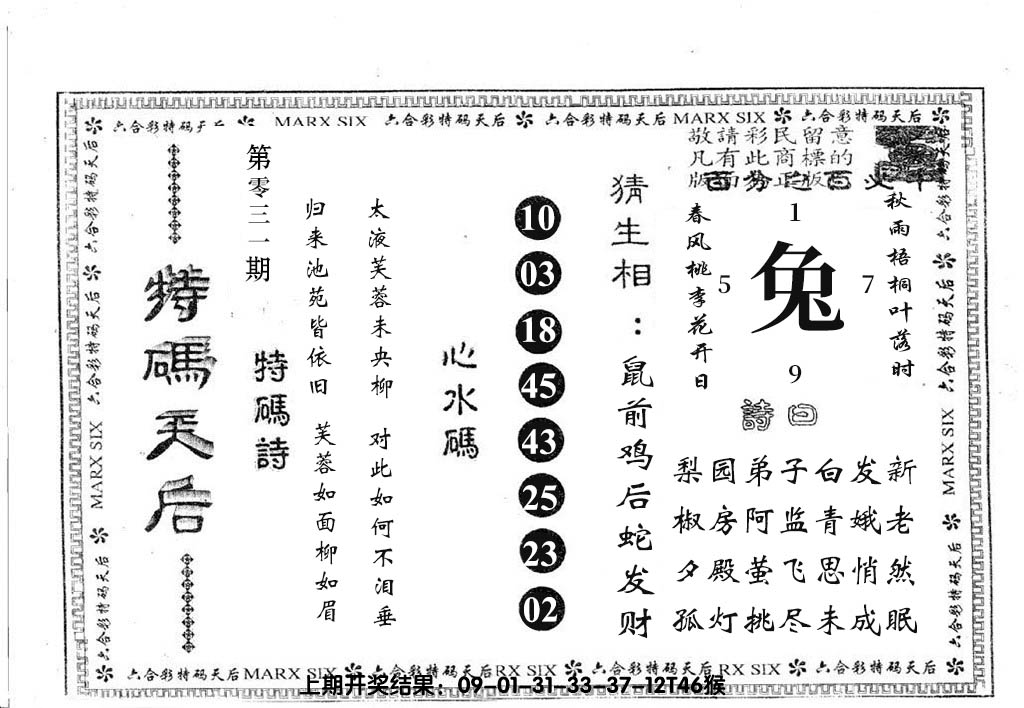 六合彩特码天后 MARX SIX 六合彩特码天后 六合彩特码天后 MARX SIX 六合彩特码天后
六合彩特码天后 六合彩特码天后 MARX SIX 六合彩特码天后
特碼天后
第零三一期
特碼詩
归来池苑皆依旧 芙蓉如面柳如眉
太液芙蓉未央柳 对此如何不泪垂
心水碼
10
03
18
45
43
25
23
02
猜生相：鼠前鸡后蛇发财
敬請彩民留意
凡有此商標的
版正版
春风桃李花开日
1
5 兔 7
9
秋雨梧桐叶落时
詩曰
梨园弟子白发新
椒房阿监青娥老
夕殿萤飞思悄然
孤灯挑尽未成眠
六合彩特码天后 六合彩特码天后 MARX SIX 六合彩特码天后
六合彩特码天后 MARX SIX 六合彩特码天后 RX SIX 六合彩特码天后 RX SIX 六合彩特码天后
上期开奖结果：09-01-31-33-37-12T46猴